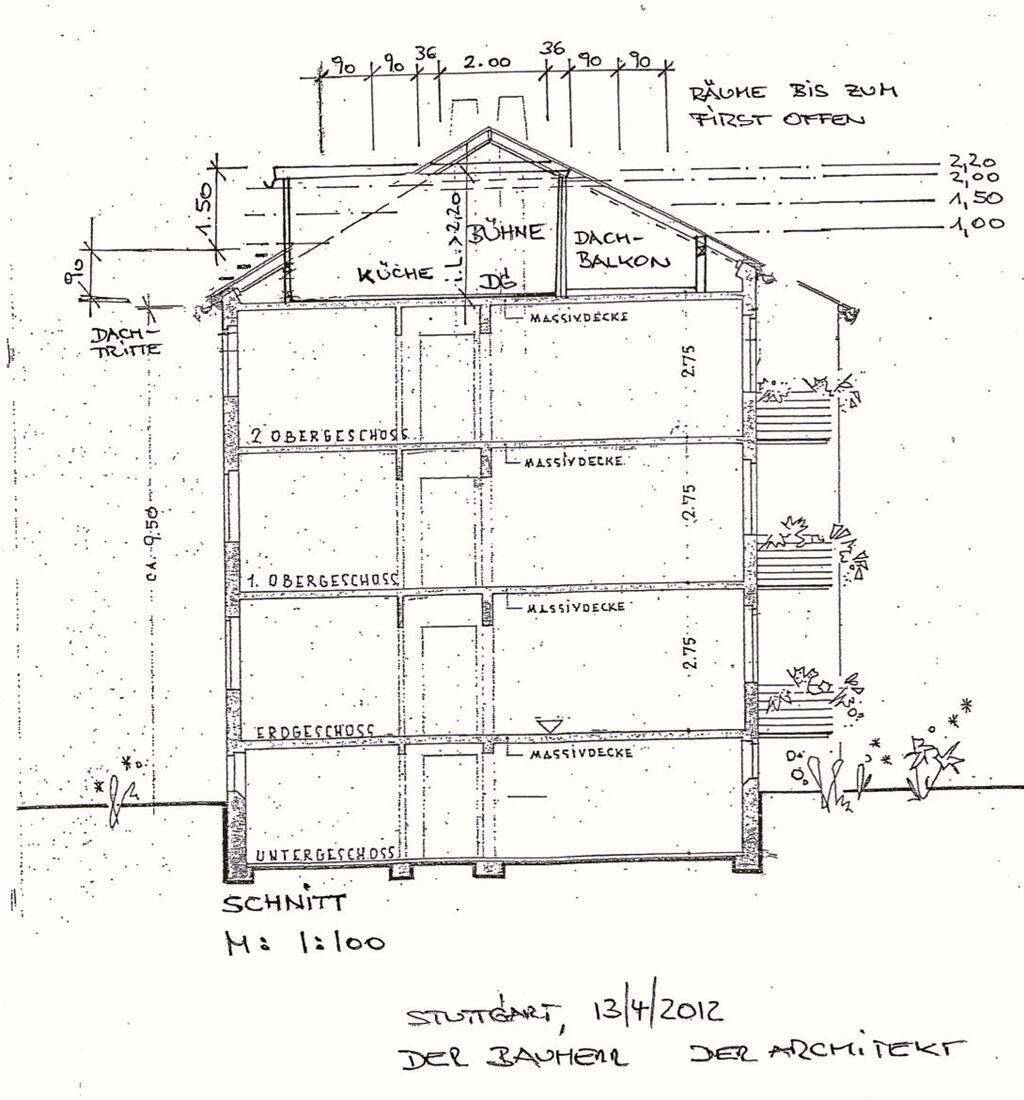 90 90 36 2.00 36 90 90
RÄUME BIS ZUM
FIRST OFFEN
2,20
2,00
1,50
1,00
1.50
90
i.L.>2,20
BÜHNE
KÜCHE
DG
DACH-
BALKON
DACH-
TRITTE
MASSIVDECKE
2.75
2 OBERGESCHOSS
MASSIVDECKE
CA. 9.50
2.75
1. OBERGESCHOSS
MASSIVDECKE
2.75
ERDGESCHOSS
MASSIVDECKE
UNTERGESCHOSS
SCHNITT
M: 1:100
STUTTGART, 13/4/2012
DER BAUHERR DER ARCHITEKT